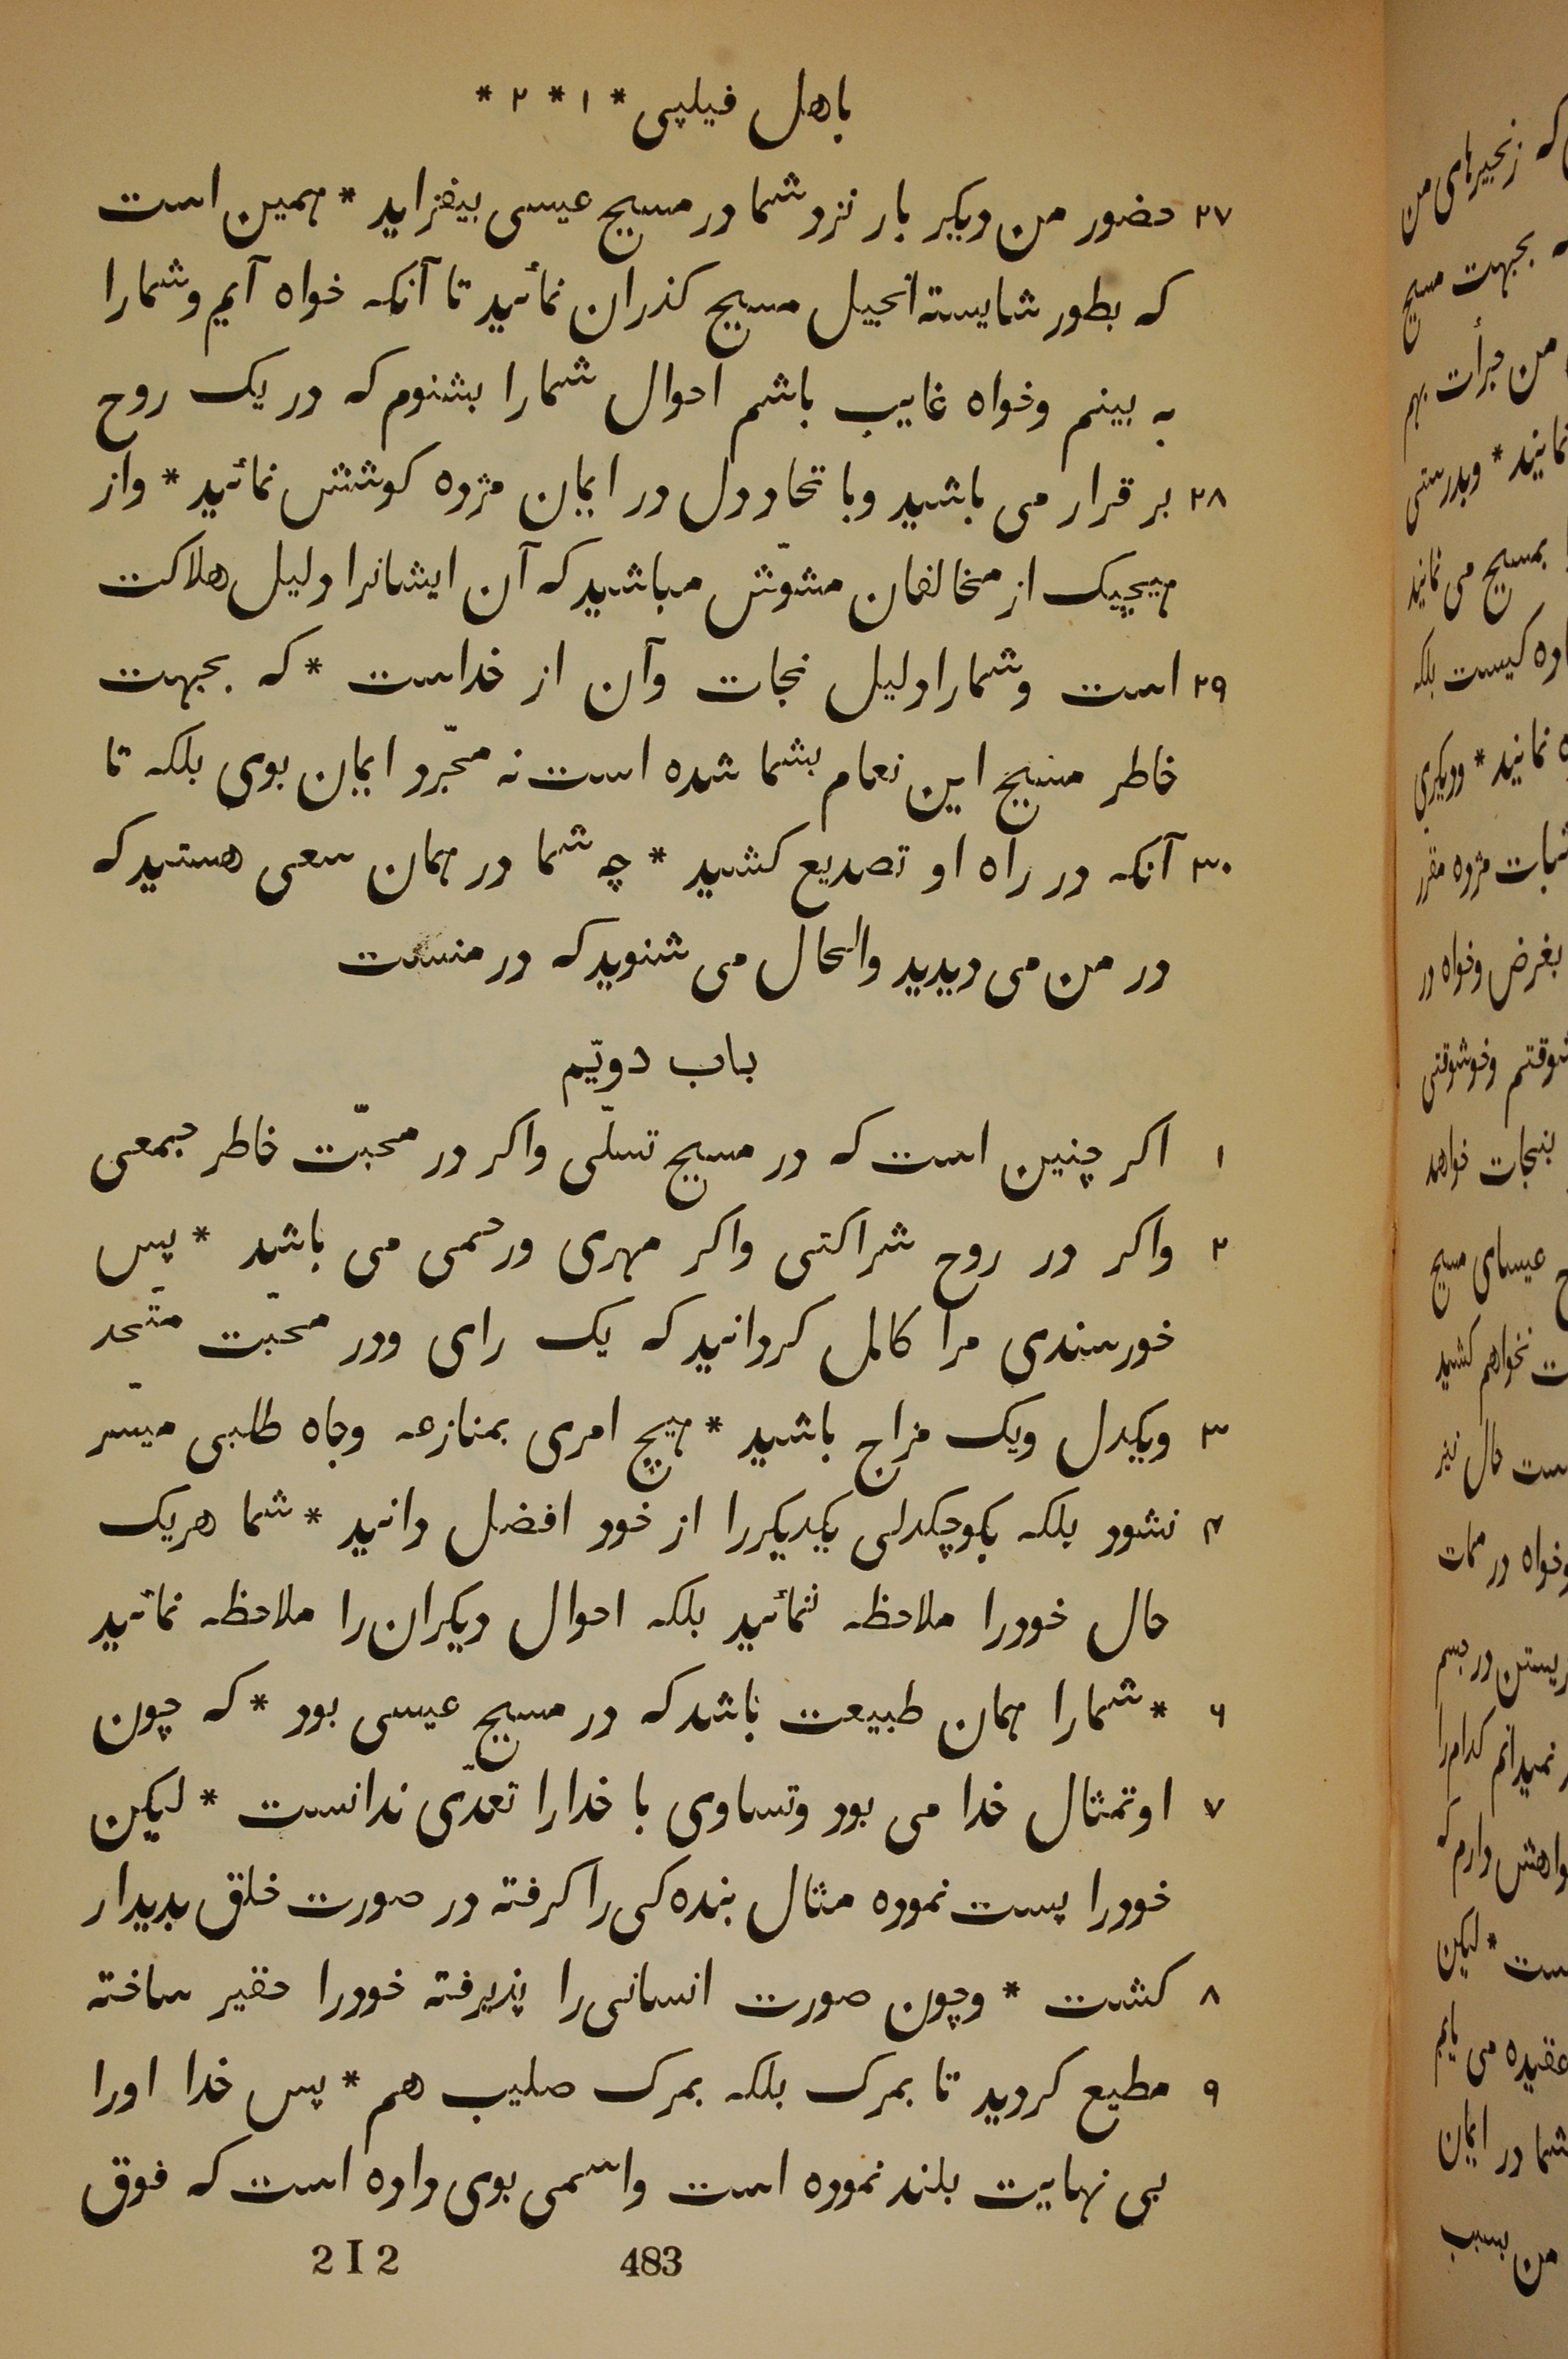 باهل فیلپی * ۱ * ۲ *
۲۷ حضور من دیکر بار نزد شما در مسیح عیسی بیفزاید * همین است
که بطور شایسته انجیل مسیح کذران نمائید تا آنکه خواه آیم و شمارا
به بینم وخواه غایب باشم احوال شمارا بشنوم که در یک روح
۲۸ بر قرار می باشید وباتحاد دل در ایمان مژده کوشش نمائید * واز
هیچیک از مخالفان مشوّش مباشید که آن ایشانرا دلیل هلاکت
۲۹ است وشمارا دلیل نجات وآن از خداست * که بجهت
خاطر مسیح این نعام بشما شده است نه مجرّد ایمان بوی بلکه تا
۳۰ آنکه در راه او تصدیع کشید * چه شما در همان سعی هستید که
در من می دیدید والحال می شنوید که در منست
باب دویّم
۱ اکر چنین است که در مسیح تسلّی واکر در محبّت خاطر جمعی
۲ واکر در روح شراکتی واکر مهری ورحمی می باشد * پس
خورسندی مرا کامل کردانید که یک رای ودر محبّت متّحد
۳ ویکدل ویک مزاج باشید * هیچ امری بمنازعه وجاه طلبی میسّر
۴ نشود بلکه بکوچکدلی یکدیکررا از خود افضل دانید * شما هریک
حال خودرا ملاحظه ننمائید بلکه احوال دیکران را ملاحظه نمائید
۶ * شمارا همان طبیعت باشد که در مسیح عیسی بود * که چون
۷ او تمثال خدا می بود وتساوی با خدارا تعدّی ندانست * لیکن
خودرا پست نموده مثال بنده کی را کرفته در صورت خلق پدیدار
۸ کشت * وچون صورت انسانی را پذیرفته خودرا حقیر ساخته
۹ مطیع کردید تا بمرک بلکه بمرک صلیب هم * پس خدا اورا
بی نهایت بلند نموده است واسمی بوی داده است که فوق
483 2 I 2
که زنجیرهای من
بجهت مسیح
من جرأت بهم
نمایند * وبدرستی
بمسیح می نمایند
کیست بلکه
نمایند * ودیکری
مژده مقرر
بغرض وخواه در
وخوشوقتی
بنجات خواهد
عیسای مسیح
نخواهم کشید
حال نیز
وخواه در ممات
در جسم
نمیدانم کدام را
دارم که
* لیکن
عقیده می یابم
شما در ایمان
من بسبب